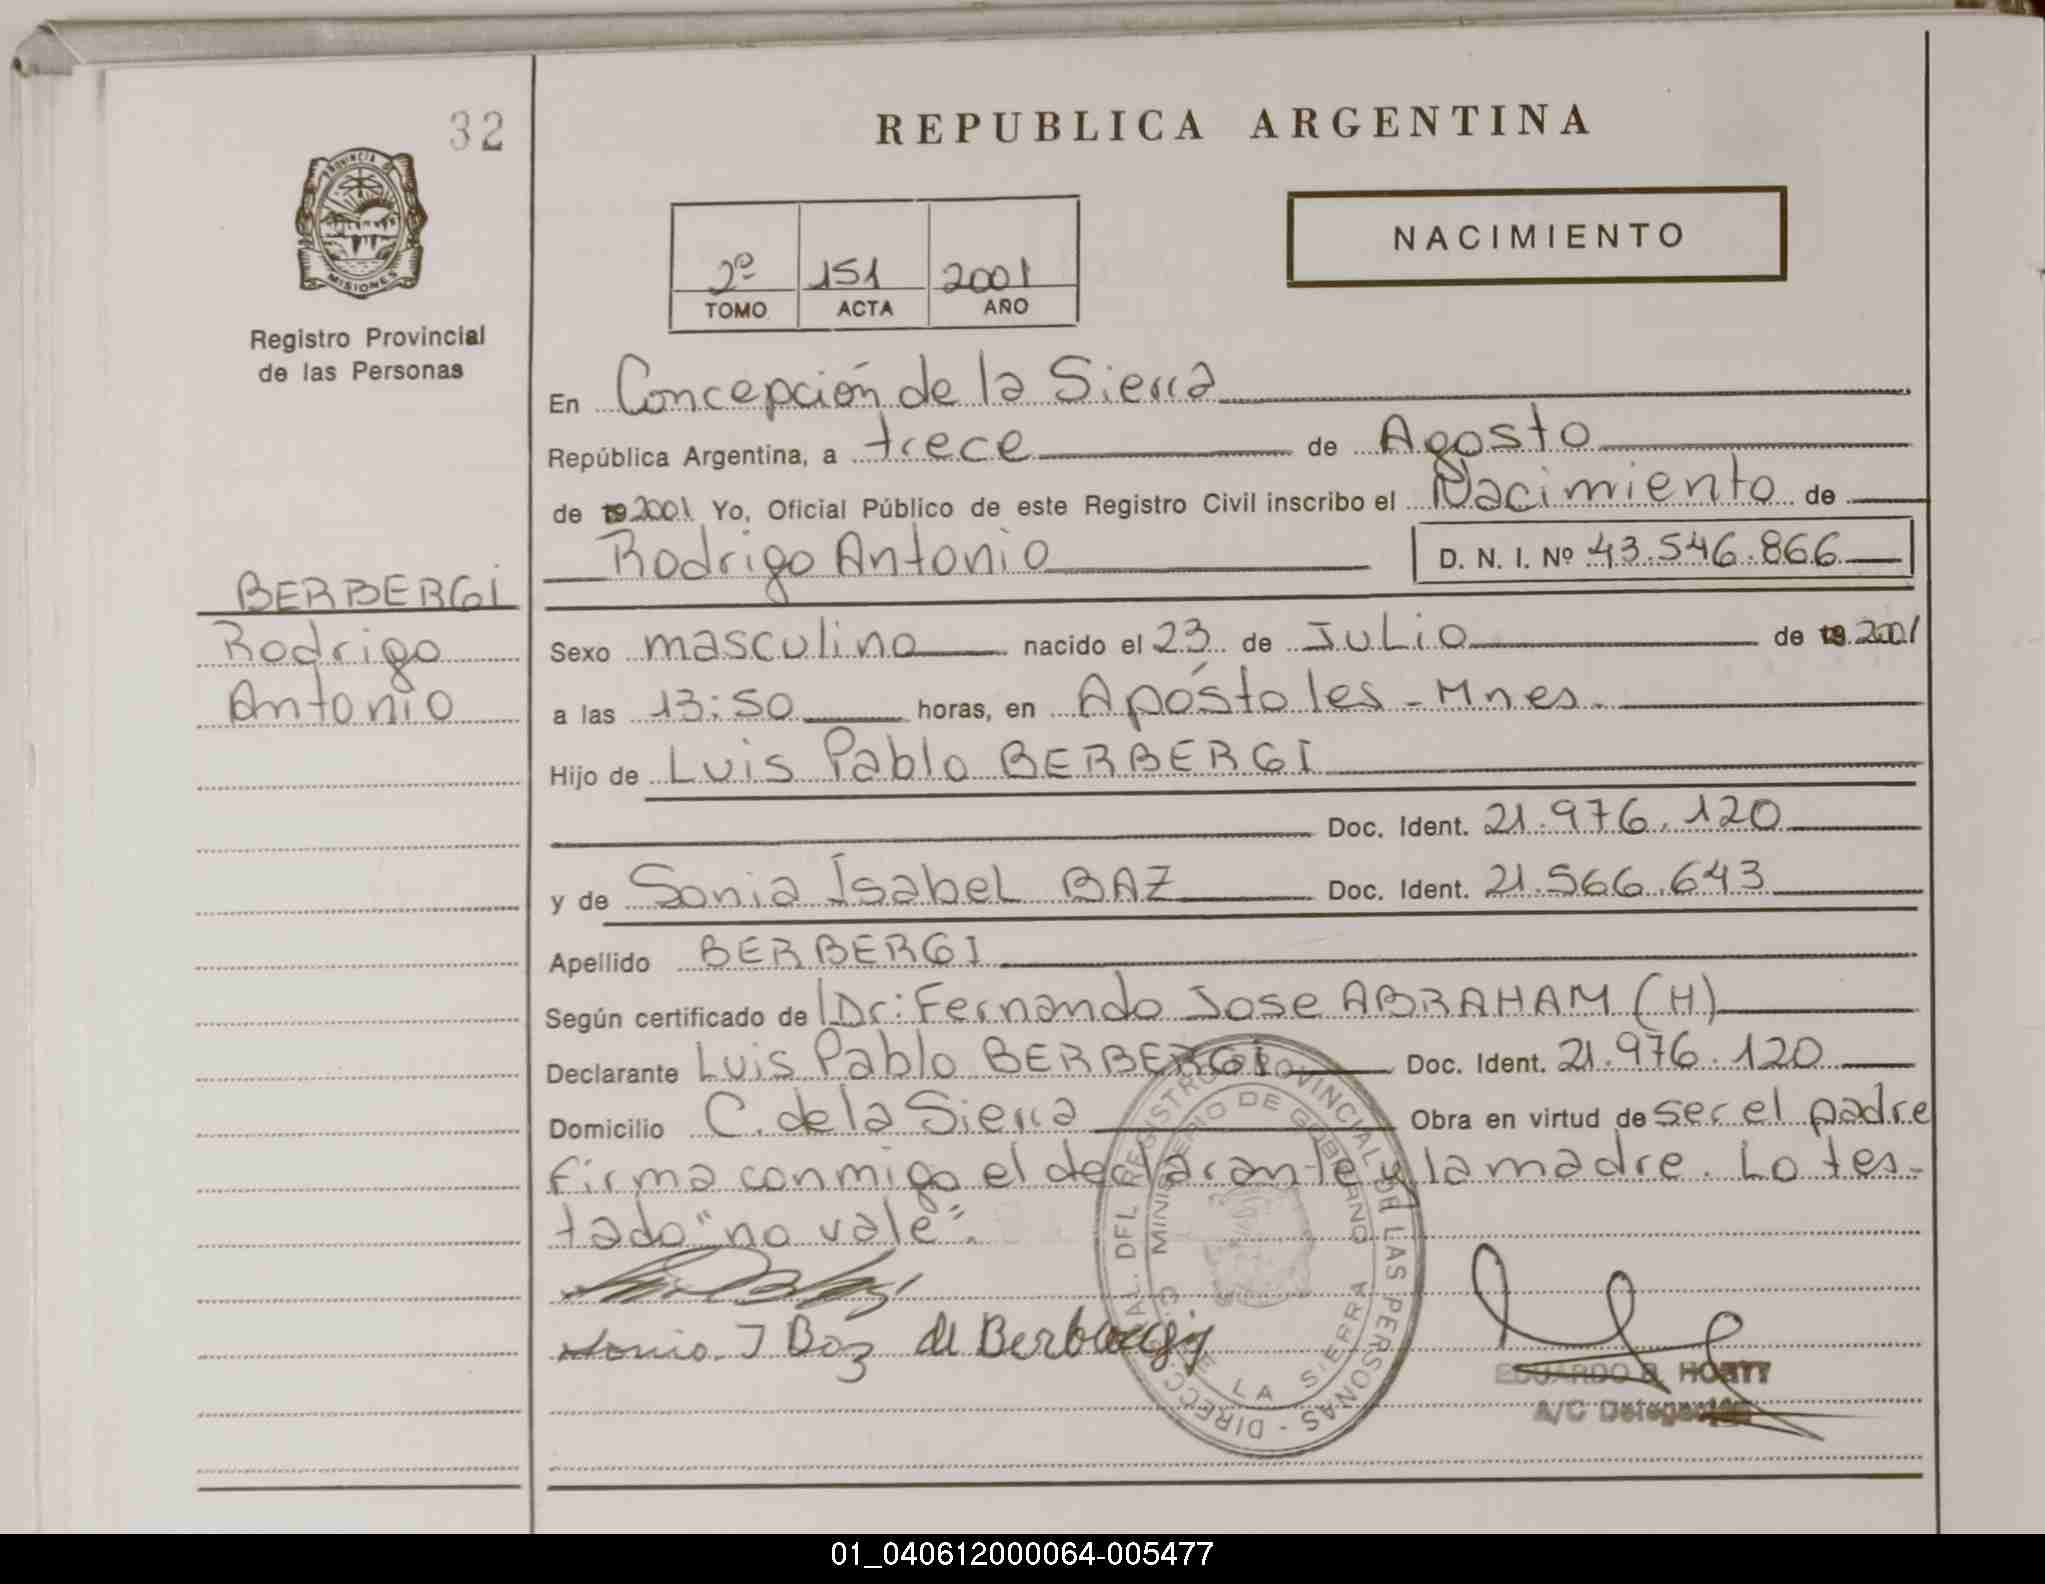 32
REPUBLICA ARGENTINA
PROVINCIA DE
MISIONES
Registro Provincial
de las Personas
2º 151 2001
TOMO ACTA AÑO
NACIMIENTO
En Concepción de la Sierra
República Argentina, a trece de Agosto
de 19 2001 Yo, Oficial Público de este Registro Civil inscribo el Nacimiento de
Rodrigo Antonio D. N. I. Nº 43.546.866
BERBERGI
Rodrigo
Antonio
Sexo masculino nacido el 23 de Julio de 19 2001
a las 13:50 horas, en Apóstoles - Mnes.
Hijo de Luis Pablo BERBERGI
Doc. Ident. 21.976.120
y de Sonia Isabel BAZ Doc. Ident. 21.566.643
Apellido BERBERGI
Según certificado de Dr: Fernando Jose ABRAHAM (H)
Declarante Luis Pablo BERBERGI Doc. Ident. 21.976.120
Domicilio C. de la Sierra Obra en virtud de ser el padre
firma conmigo el declarante y la madre. Lo tes-
tado "no vale".
DEL REGISTRO PROVINCIAL DE LAS PERSONAS - DIRECC
MINISTERIO DE GOBIERNO
DE LA SIERRA
Sonia I Baz de Berbergi
EDUARDO R. HORTT
A/C Delegación
01_040612000064-005477